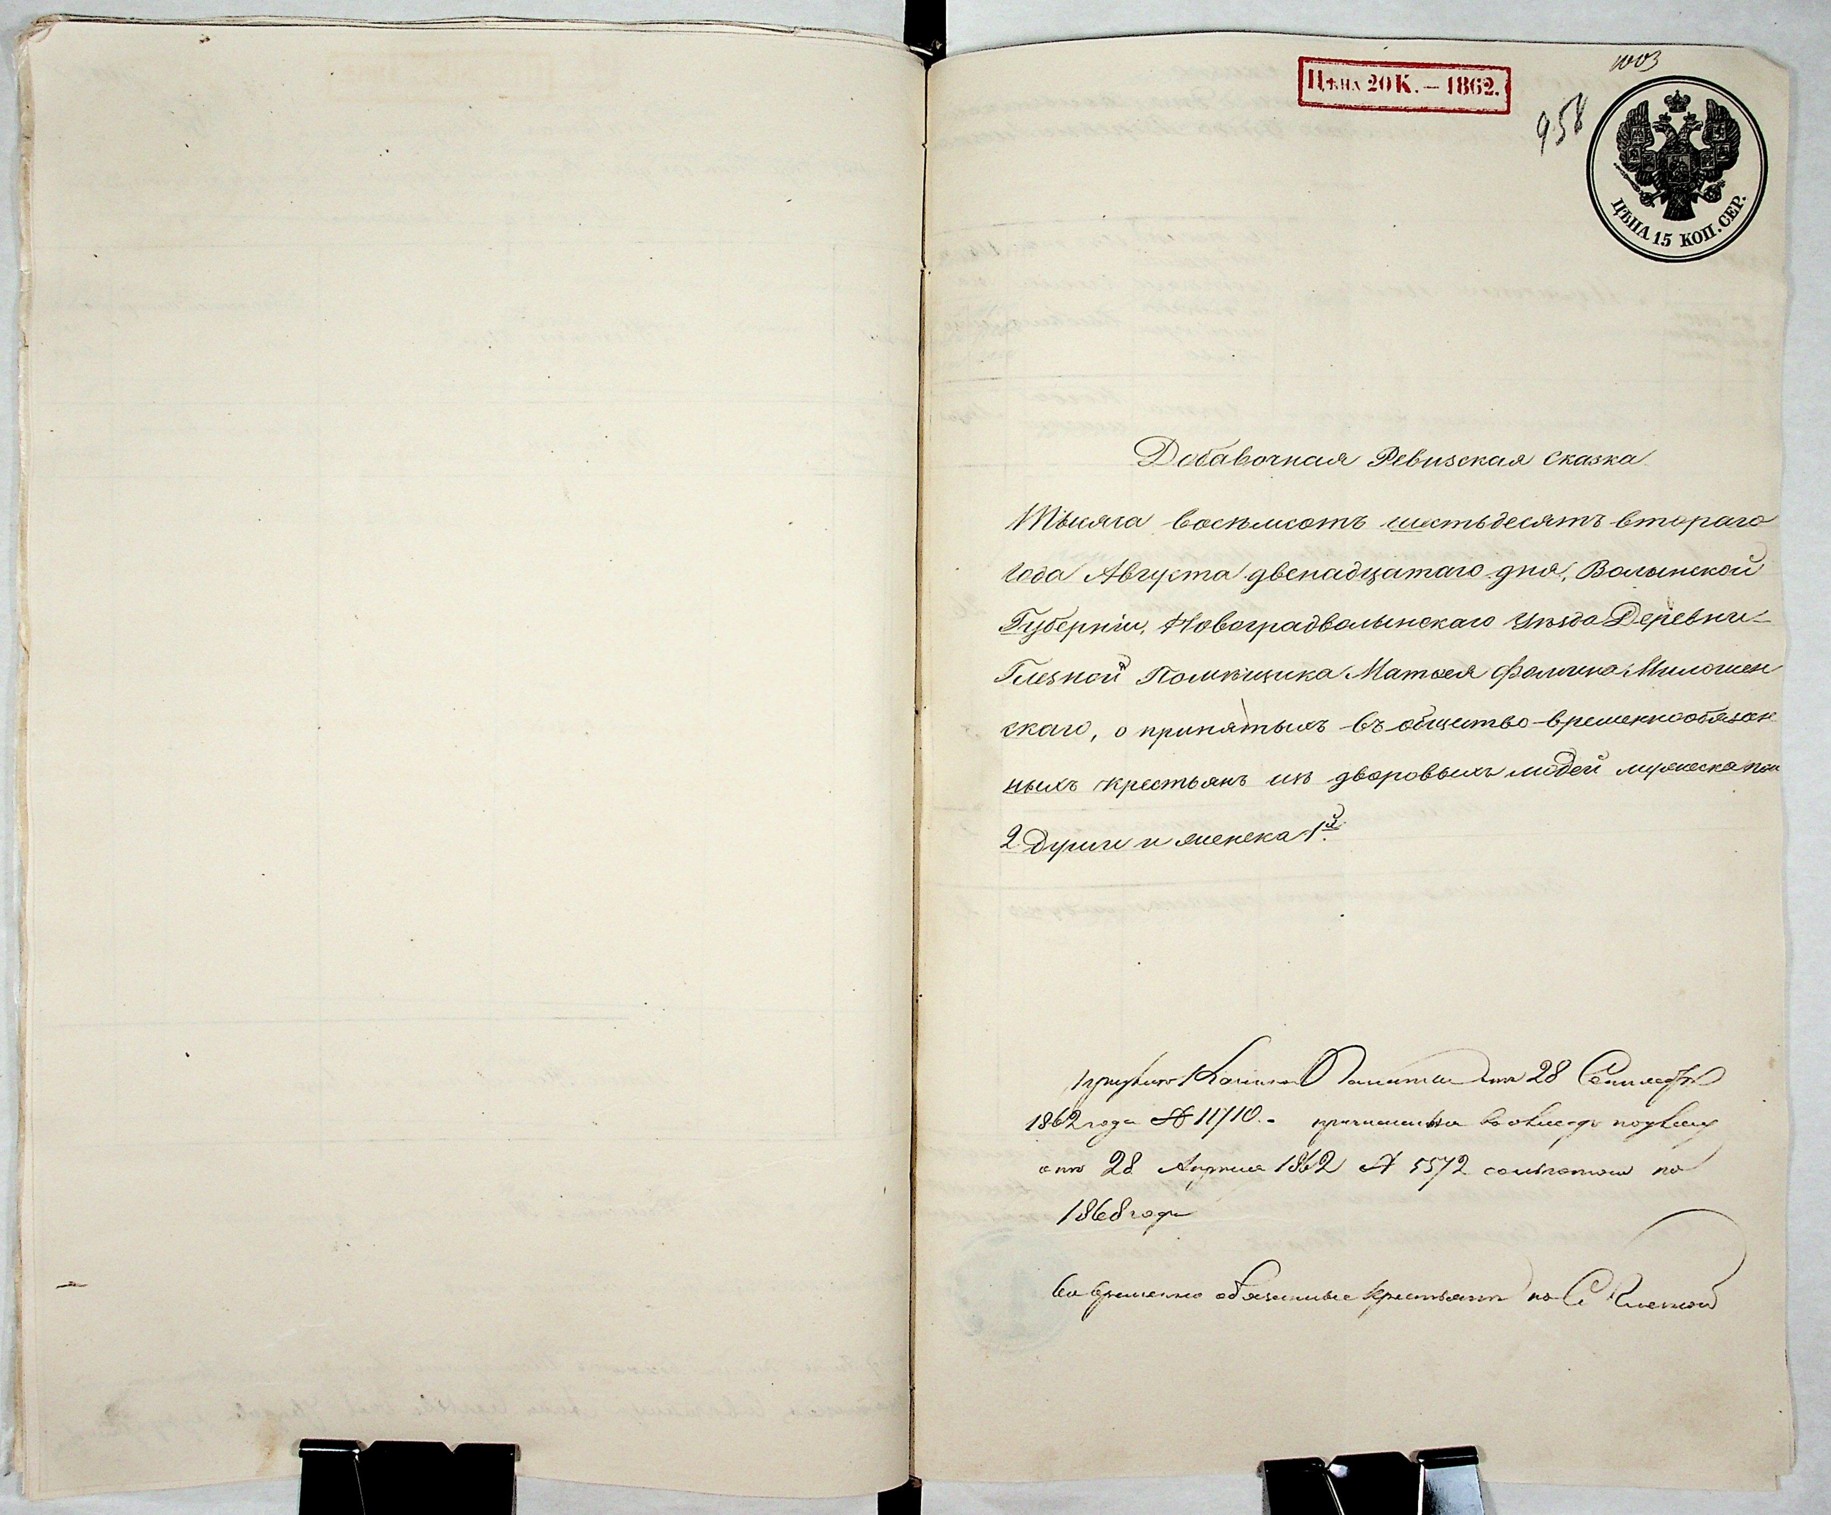 1003
Цѣна 20 К. — 1862.
958
ЦѢНА 15 КОП. СЕР.
Добавочная Ревизская сказка
Тысяча восемьсотъ шестьдесятъ втораго
года Августа двенадцатаго дня, Волынской
Губерніи, Новоградволынскаго Уѣзда Деревни
Глезной Помѣщика Матвея Фомина Милошен
скаго, о принятыхъ въ общество временнообязан
ныхъ крестьянъ изъ дворовыхъ людей мужеска пола
2 души и женска 1й
28 Сентября
1862 года № 11710. - причислены
отъ 28 Апреля 1862 № 5572 по
1868 года
во временно обязанные крестьяне по С.